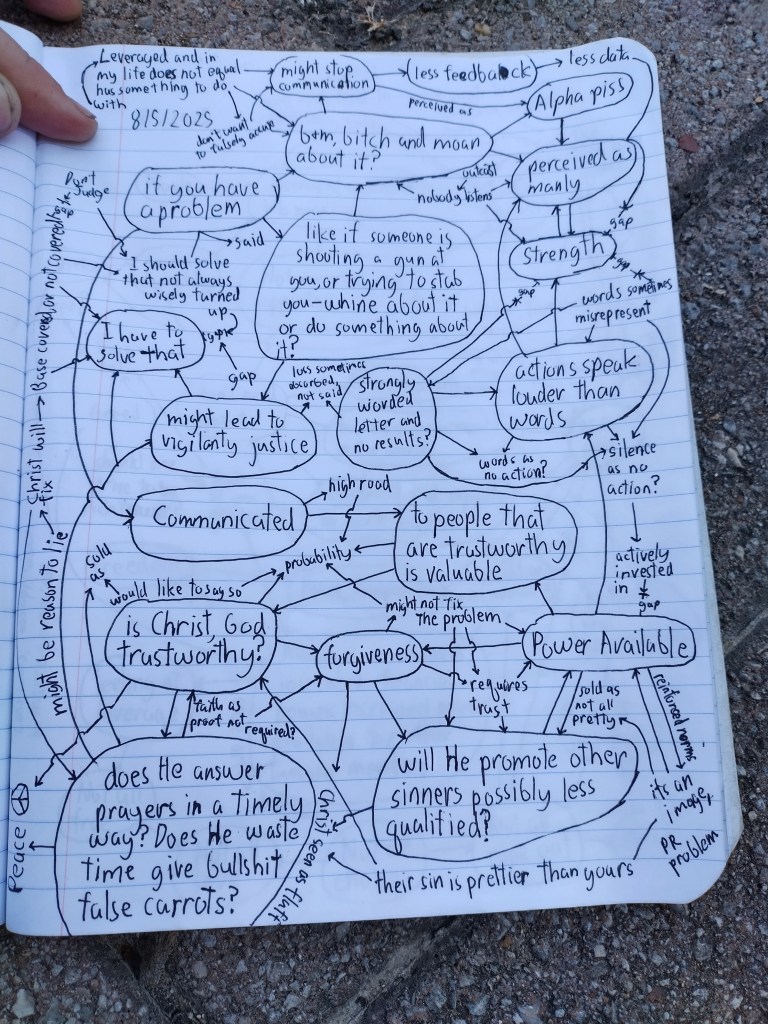 Leveraged and in
my life does not equal
has something to do
with
8/5/2025
might stop
communication
less feedback
less data
perceived as
Alpha piss
don't want
to falsely accuse
b+m, bitch and moan
about it?
perceived as
manly
outcast
nobody listens
gap
Don't
Judge
if you have
a problem
said
I should solve
that not always
wisely turned
up
like if someone is
shooting a gun at
you, or trying to stab
you-whine about it
or do something about
it?
Strength
gap
gap
words sometimes
misrepresent
I have to
solve that
gap
might lead to
vigilanty justice
loss sometimes
absorbed,
not said
strongly
worded
letter and
no results?
actions speak
louder than
words
words as
no action?
silence
as no
action?
actively
invested
in
gap
Christ will
fix
Base covered, or not covered
might be reason to lie
high road
Communicated
probability
to people that
are trustworthy
is valuable
sold
as
would like to say so
might not fix
the problem
is Christ, God
trustworthy?
forgiveness
Power Available
requires
trust
sold as
not all
pretty
reinforced norms
faith as
proof not
required?
does He answer
prayers in a timely
way? Does He waste
time give bullshit
false carrots?
will He promote other
sinners possibly less
qualified?
its an
image,
PR
problem
Peace
Christ seen as fluff
their sin is prettier than yours